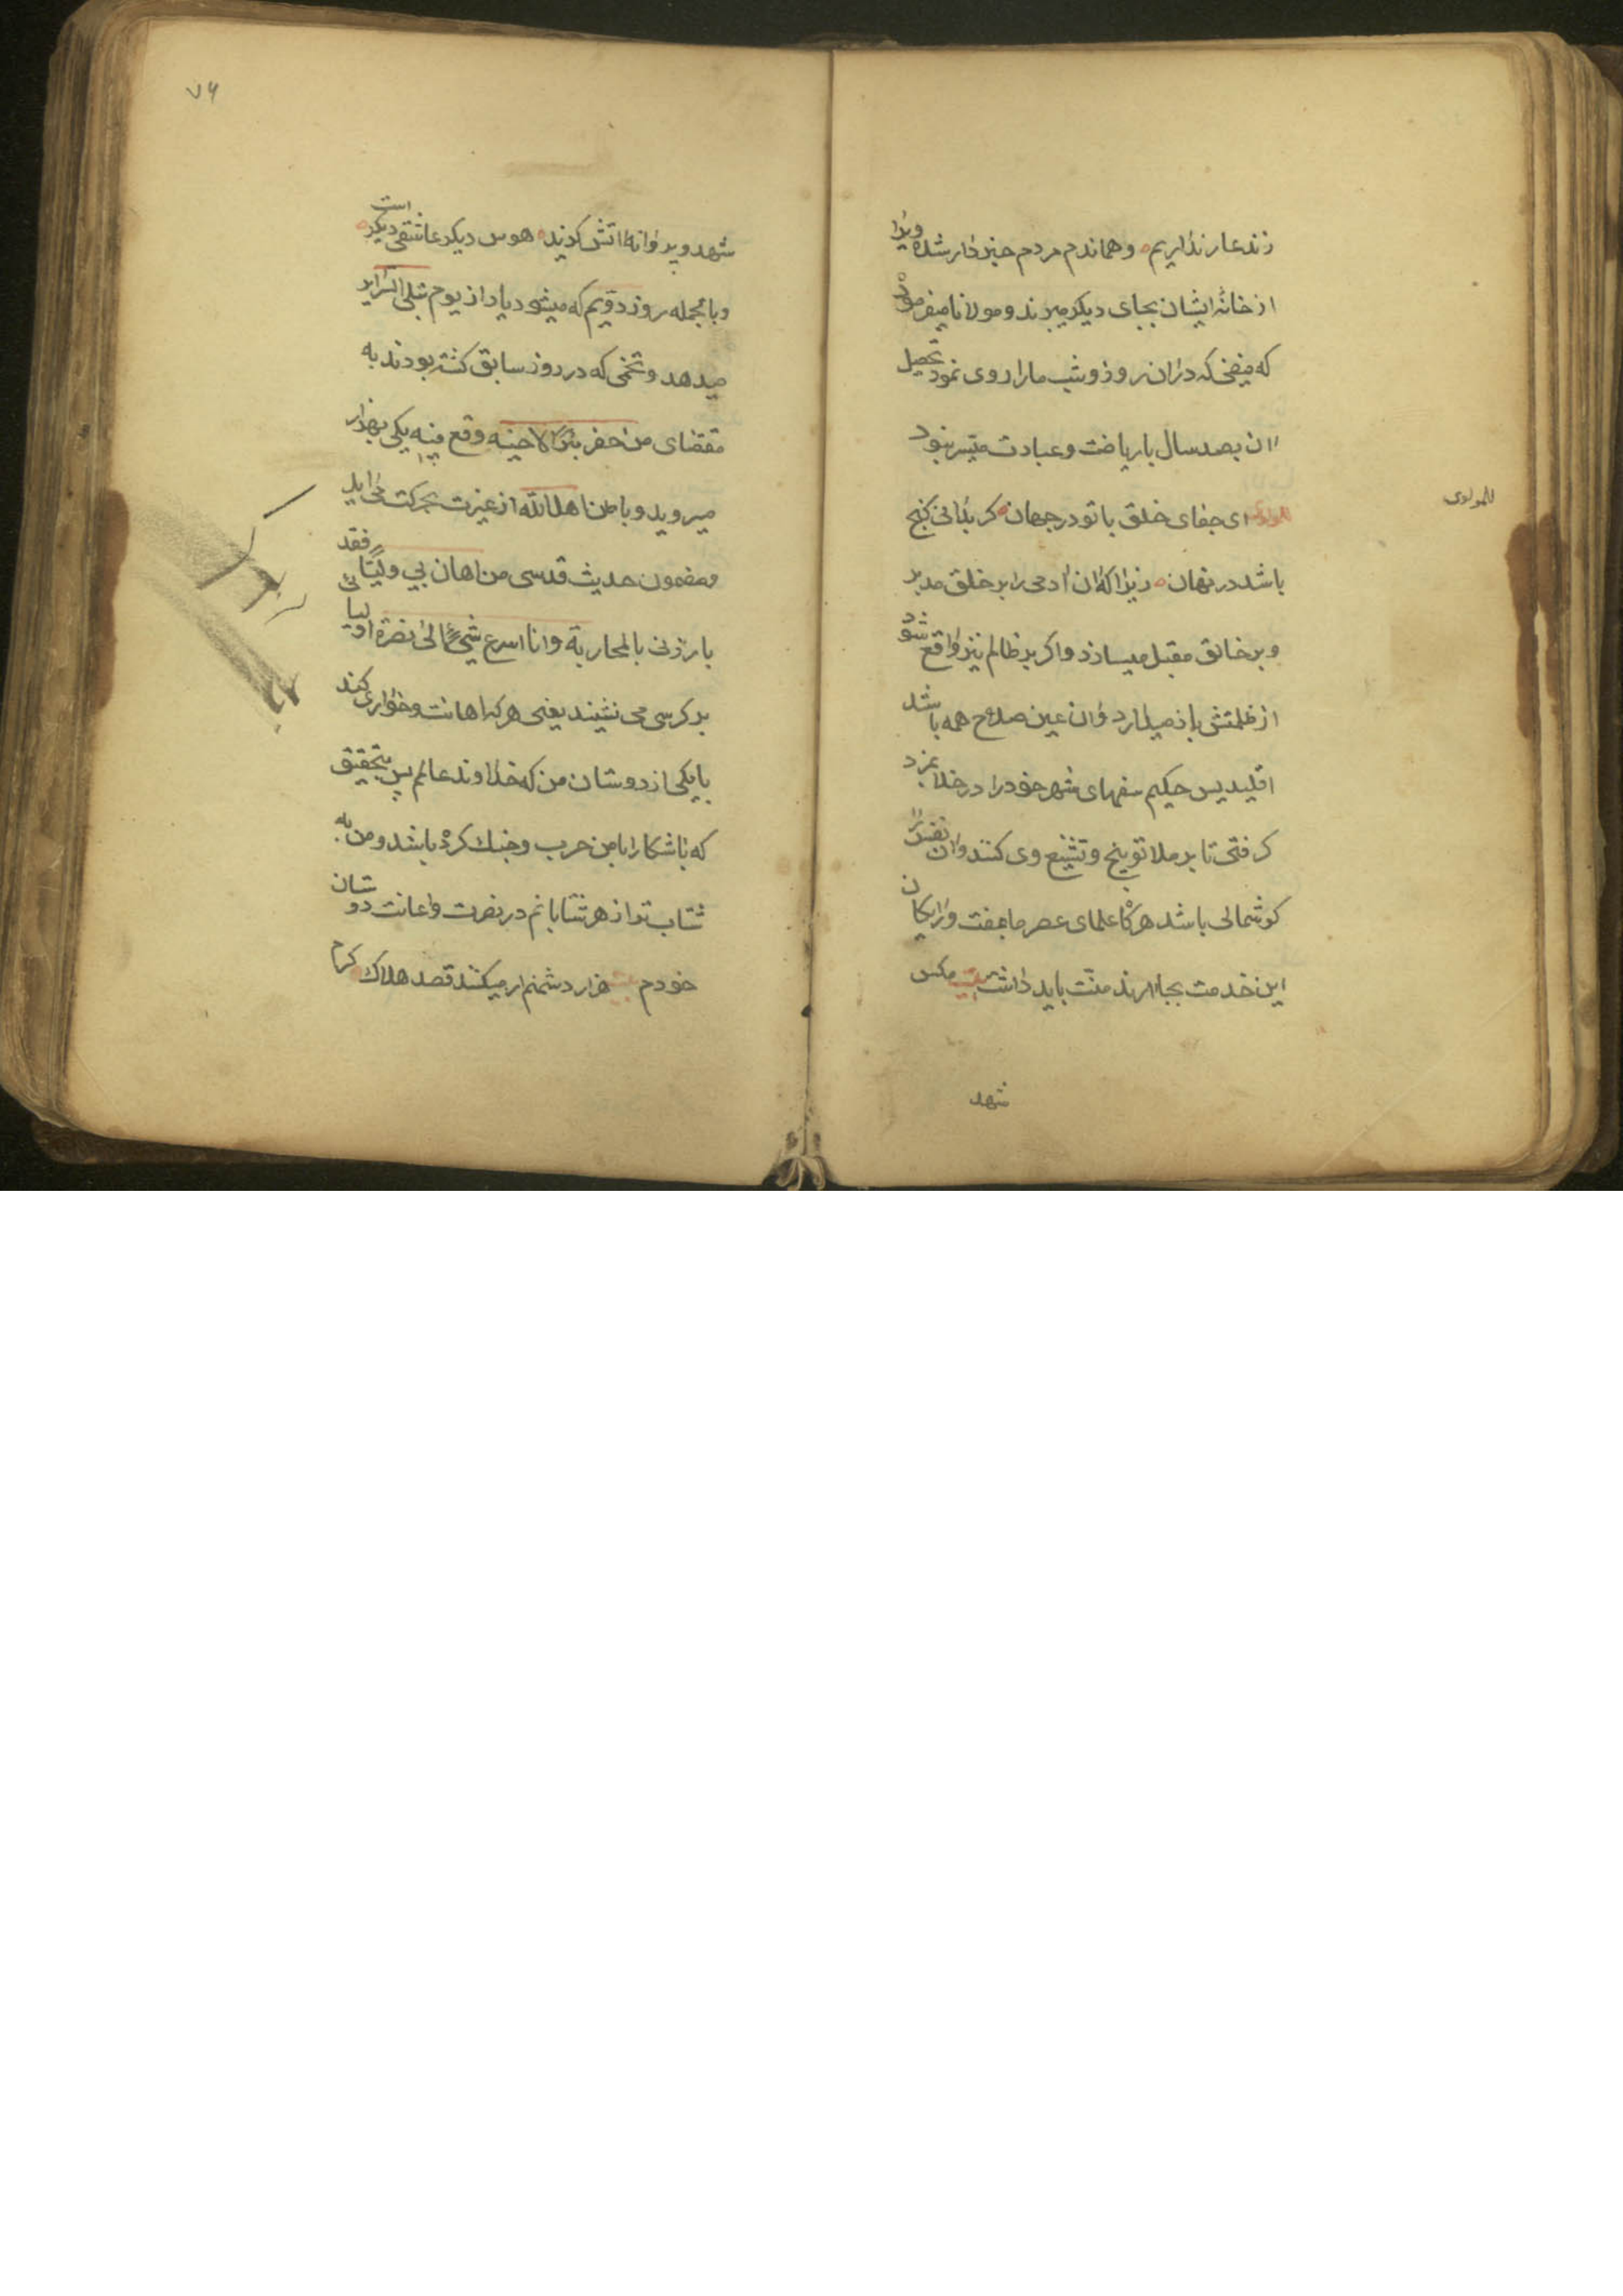 زند عار نداریم وهماندم مردم خبردار شده ویرا
از خانهٔ ایشان بجای دیکر میبرند ومولانا میفرمود
که فیضی که دران روز وشب مارا روی نمود تحصیل
ان بصد سال باریاضت وعبادت میسر نبود
للمولوی
للمولوی ای جفای خلق باتو در جهان کر بدانی کنج
باشد در نهان زیرا که ان ادمی را بر خلق مدبر
وبر خالق مقبل میسازد واکر بر ظالم نیز واقع شود
از ظلمتش باز میدارد وان عین صلاح همه باشد
اقلیدیس حکیم سفهای شهر خودرا در خلا بمزد
کرفتی تا بر ملا توبیخ وتشنیع وی کنند وان نفس را
کوشمالی باشد هرکاه علمای عصر ما بمفت ورایکان
این خدمت بجا ارند منت باید داشت بیت مکس
شهد
۷۶
شهد وپروانه اتش کزیند هوس دیکر عاشقی دیکر است
وبالجمله روز دویم که میشود یاد از یوم تبلی السرایر
میدهد وتخمی که در روز سابق کشته بودند به
مقتضای من حفر بئرا لاخیه وقع فیه یکی بهزار
میروید وباطن اهل الله از غیرت بحرکت می اید
ومضمون حدیث قدسی من اهان بی ولیّا فقد
بارزنی بالمحاربة وانا اسرع شیء الی نصرة اولیائی
بر کرسی می نشیند یعنی هر که اهانت وخواری کند
با یکی از دوستان من که خداوند عالم پس بتحقیق
که باشکارا بامن حرب وجنك کرده باشد ومن به
شتاب تر از هر شتابانم در نصرت واعانت دوستان
خودم بیت هزار دشمنم ار میکنند قصد هلاك کرم